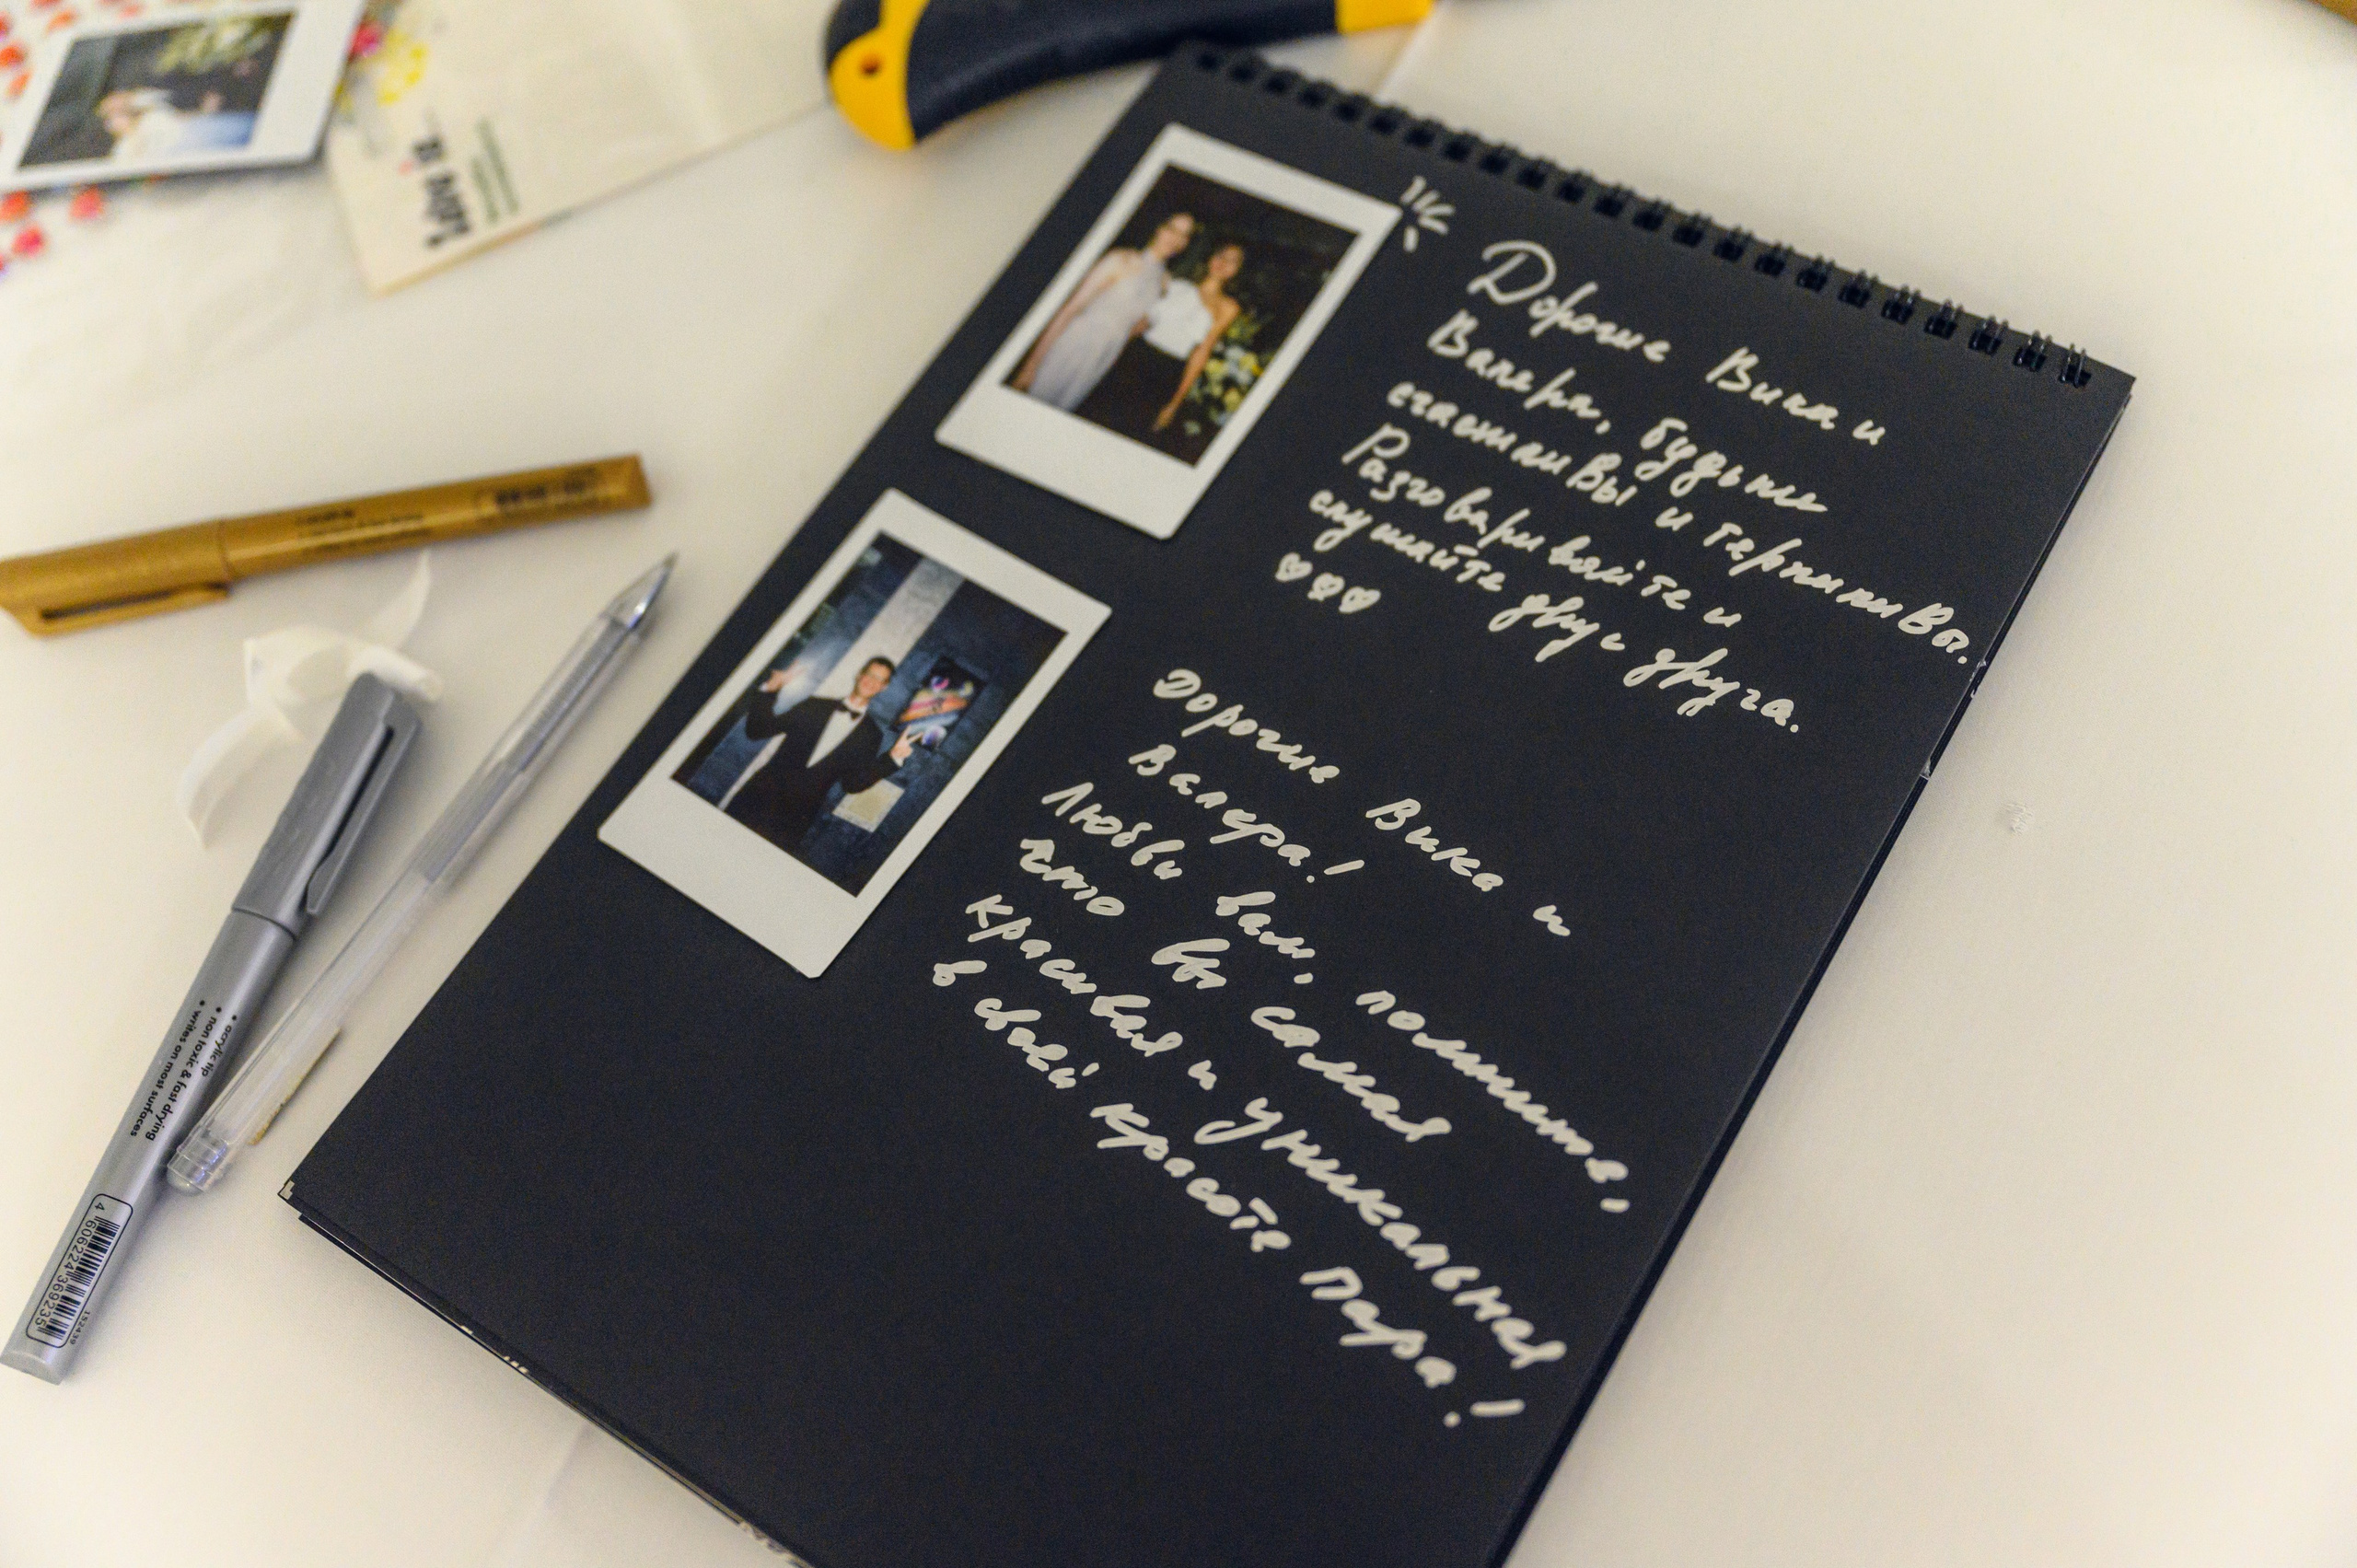 Дорогие Вика и
Валера, будьте
счастливы и терпиливы.
Разговаривайте и
слушайте друг друга.
Дорогие Вика и
Валера!
Любви вам, помните,
что вы самая
красивая и уникальная
в своей красоте пара!
acrylic tip
non toxic & fast drying
writes on most surfaces
4 606224 369235
152439